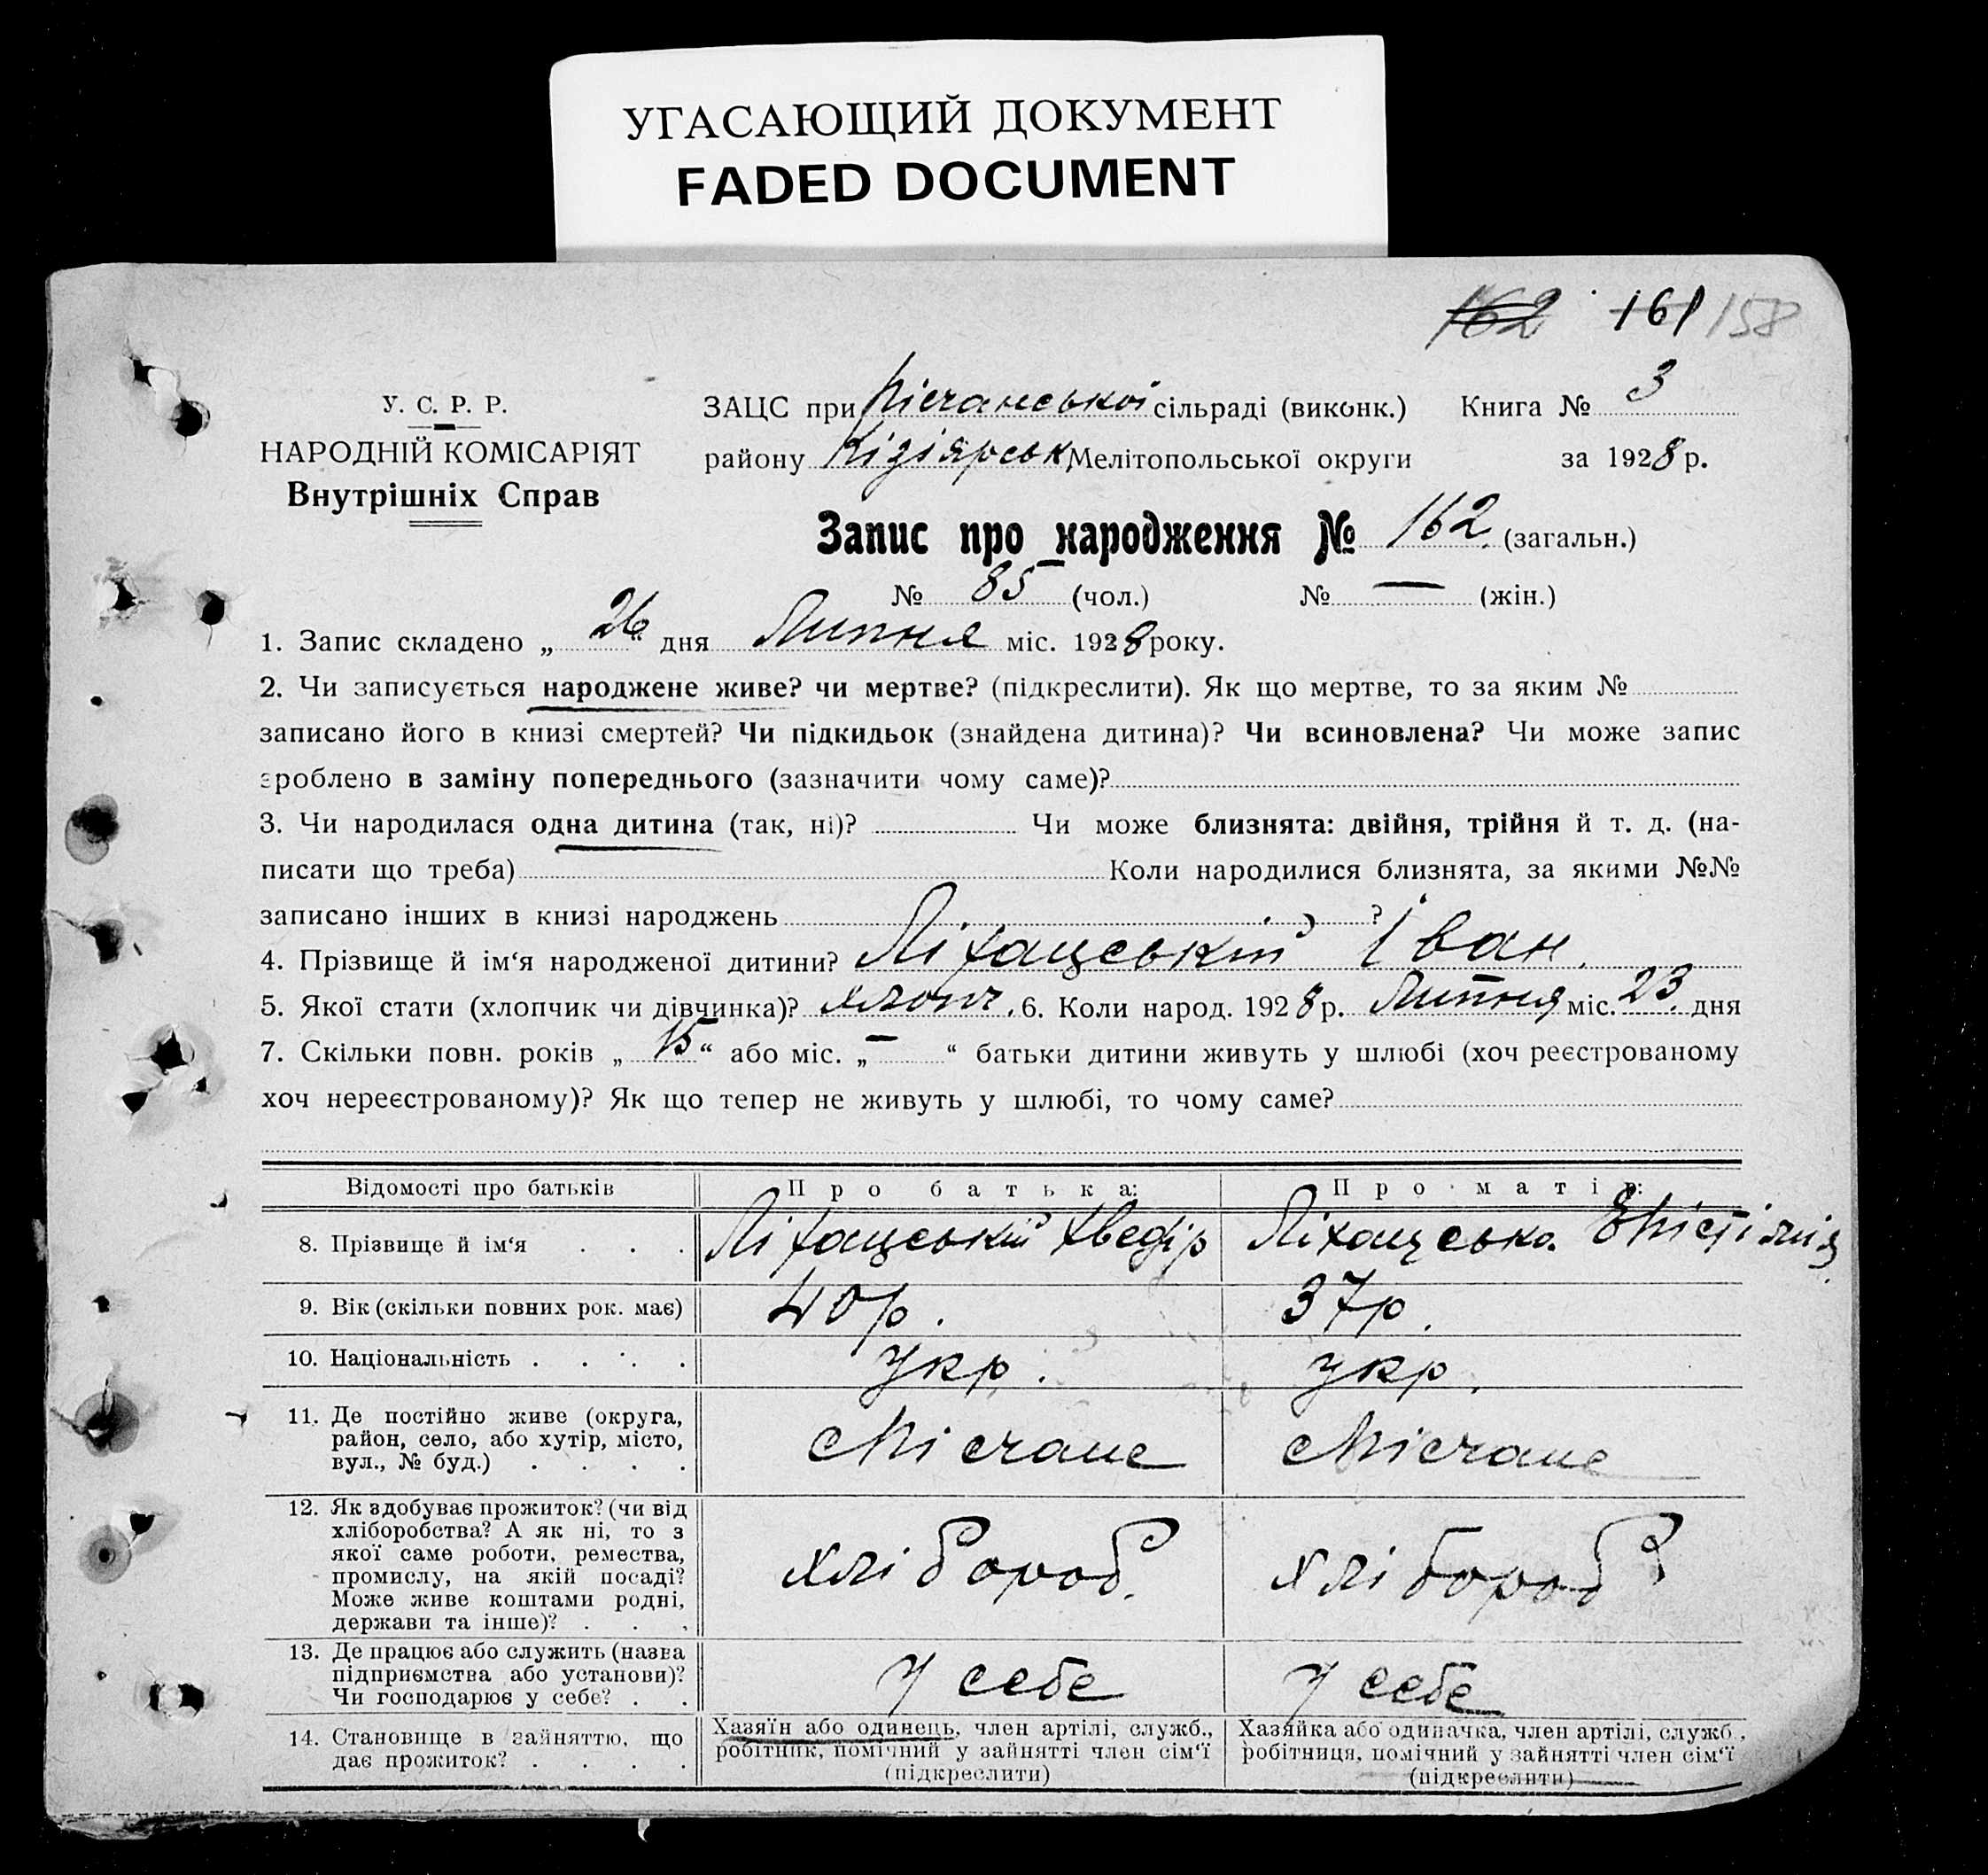 УГАСАЮЩИЙ ДОКУМЕНТ
FADED DOCUMENT
162 161 158
У. С. Р. Р.
НАРОДНІЙ КОМІСАРІЯТ
Внутрішніх Справ
ЗАЦС при Пісчанської сільраді (виконк.) Книга № 3
району Кізіярськ Мелітопольської округи за 1928 р.
Запис про народження № 162. (загальн.)
№ 85 (чол.) № — (жін.)
1. Запис складено „ 26 “ дня Липня міс. 1928 року.
2. Чи записується народжене живе? чи мертве? (підкреслити). Як що мертве, то за яким №
записано його в книзі смертей? Чи підкидьок (знайдена дитина)? Чи всиновлена? Чи може запис
зроблено в заміну попереднього (зазначити чому саме)?
3. Чи народилася одна дитина (так, ні)? Чи може близнята: двійня, трійня й т. д. (на-
писати що треба) Коли народилися близнята, за якими №№
записано інших в книзі народжень ?
4. Прізвище й ім‘я народженої дитини? Ліхацський Іван.
5. Якої стати (хлопчик чи дівчинка)? хлопч. 6. Коли народ. 1928 р. Липня міс. 23. дня
7. Скільки повн. років „ 15 “ або міс. „ — “ батьки дитини живуть у шлюбі (хоч реєстрованому
хоч нереєстрованому)? Як що тепер не живуть у шлюбі, то чому саме?
Відомості про батьків Про батька: Про матір:
8. Прізвище й ім‘я . . . Ліхацський Хведір Ліхацська
9. Вік (скільки повних рок. має) 40 р. 37 р.
10. Національність . . . . Укр. укр.
11. Де постійно живе (округа,
район, село, або хутір, місто,
вул., № буд.) . . . .
12. Як здобуває прожиток? (чи від
хліборобства? А як ні, то з
якої саме роботи, ремества,
промислу, на якій посаді?
Може живе коштами родні,
держави та інше)? . . .
хлібороб. хлібороб
13. Де працює або служить (назва
підприємства або установи)?
Чи господарює у себе? . .
у себе у себе
14. Становище в зайняттю, що
дає прожиток? . . . .
Хазяїн або одинець, член артілі, служб.,
робітник, помічний у зайнятті член сім‘ї
(підкреслити)
Хазяйка або одиначка, член артілі, служб.,
робітниця, помічний у зайнятті член сім‘ї
(підкреслити)